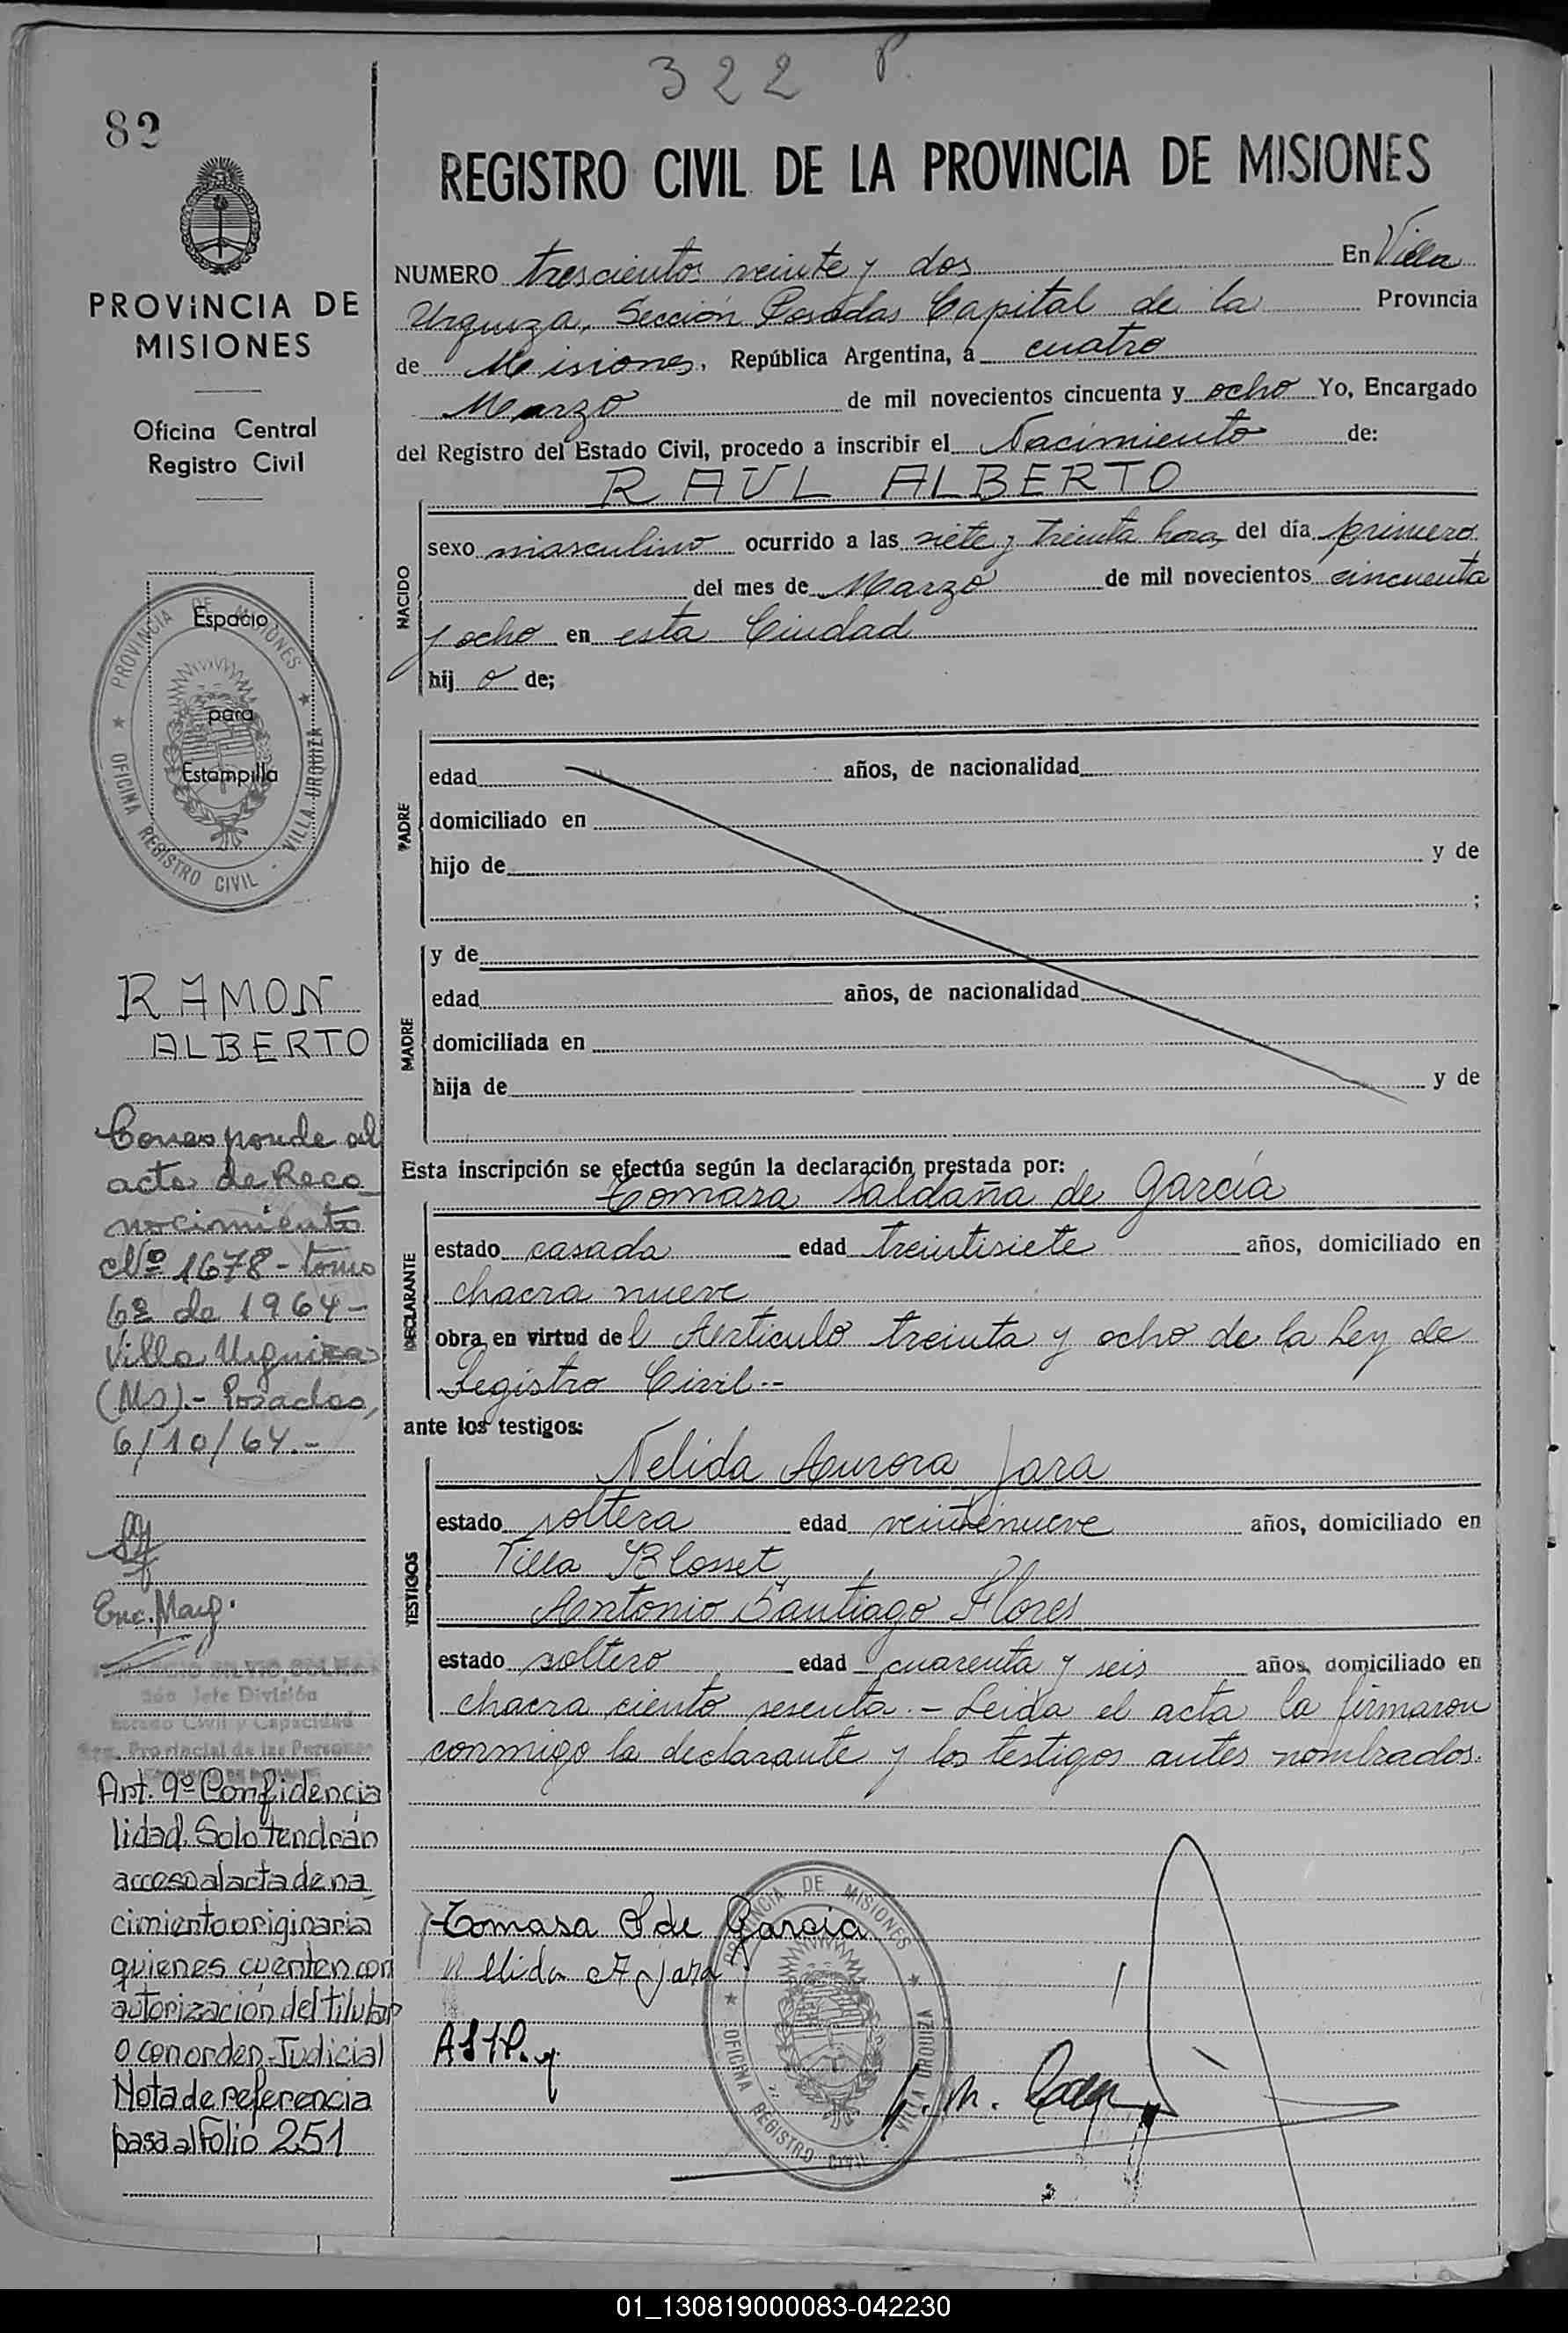 322 P.
82
REGISTRO CIVIL DE LA PROVINCIA DE MISIONES
PROVINCIA DE
MISIONES
Oficina Central
Registro Civil
NUMERO trescientos veinte y dos En Villa
Urquiza, Sección Posadas Capital de la Provincia
de Misiones, República Argentina, a cuatro
Marzo de mil novecientos cincuenta y ocho Yo, Encargado
del Registro del Estado Civil, procedo a inscribir el Nacimiento de:
RAUL ALBERTO
NACIDO
sexo masculino ocurrido a las siete y treinta horas del día primero
del mes de Marzo de mil novecientos cincuenta
y ocho en esta Ciudad
hij o de;
PADRE
edad años, de nacionalidad
domiciliado en
hijo de y de
;
MADRE
y de
edad años, de nacionalidad
domiciliada en
hija de y de
Esta inscripción se efectúa según la declaración prestada por:
Tomasa Saldaña de García
DECLARANTE
estado casada edad treintisiete años, domiciliado en
chacra nueve
obra en virtud de l Articulo treinta y ocho de la Ley de
Registro Civil.--
ante los testigos:
TESTIGOS
Nelida Aurora Jara
estado soltera edad veintinueve años, domiciliado en
Villa Blosset
Antonio Santiago Flores
estado soltero edad cuarenta y seis años, domiciliado en
chacra ciento sesenta.- Leida el acta la firmaron
conmigo la declarante y los testigos antes nombrados.
Tomasa S de Garcia
Nelida A Jara
PROVINCIA DE MISIONES
OFICINA REGISTRO CIVIL - VILLA URQUIZA
Espacio
para
Estampilla
PROVINCIA DE MISIONES
OFICINA REGISTRO CIVIL - VILLA URQUIZA
RAMON
ALBERTO
Corresponde al
acta de Reco-
nocimiento
Nº 1678 - tomo
6º de 1964-
Villa Urquiza
(Ms).- Posadas,
6/10/64.-
Enc. Marg.
Jefe División
Estado Civil y Capacidad
Reg. Provincial de las Personas
Art. 9º Confidencia
lidad. Solo tendrán
acceso al acta de na
cimiento originaria
quienes cuenten con
autorización del titular
o con orden Judicial
Nota de referencia
pasa al Folio 251
01_130819000083-042230